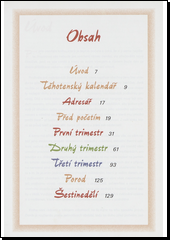 Obsah
Úvod 7
Těhotenský kalendář 9
Adresář 17
Před početím 19
První trimestr 31
Druhý trimestr 61
Třetí trimestr 93
Porod 125
Šestinedělí 129